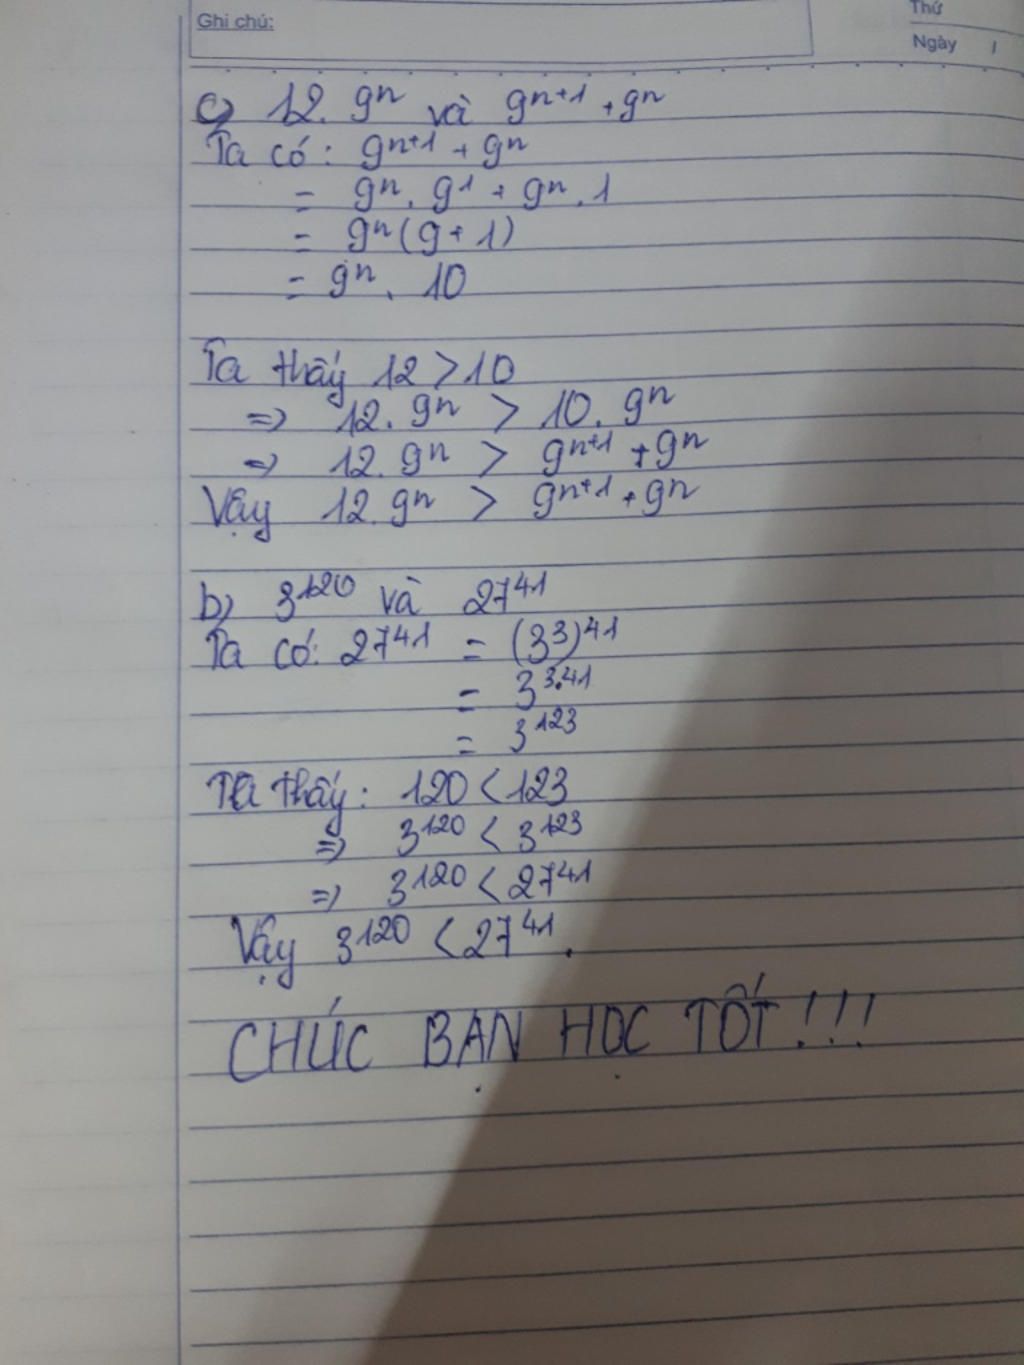 Ghi chú:
Thứ
Ngày /
c) 12. 9ⁿ và 9ⁿ⁺¹ + 9ⁿ
Ta có: 9ⁿ⁺¹ + 9ⁿ
= 9ⁿ. 9¹ + 9ⁿ. 1
= 9ⁿ(9+1)
= 9ⁿ. 10
Ta thấy 12 > 10
=> 12. 9ⁿ > 10. 9ⁿ
=> 12. 9ⁿ > 9ⁿ⁺¹ + 9ⁿ
Vậy 12. 9ⁿ > 9ⁿ⁺¹ + 9ⁿ
b) 3¹²⁰ và 27⁴¹
Ta có: 27⁴¹ = (3³)⁴¹
= 3³·⁴¹
= 3¹²³
Ta thấy: 120 < 123
=> 3¹²⁰ < 3¹²³
=> 3¹²⁰ < 27⁴¹
Vậy 3¹²⁰ < 27⁴¹.
CHÚC BẠN HỌC TỐT!!!